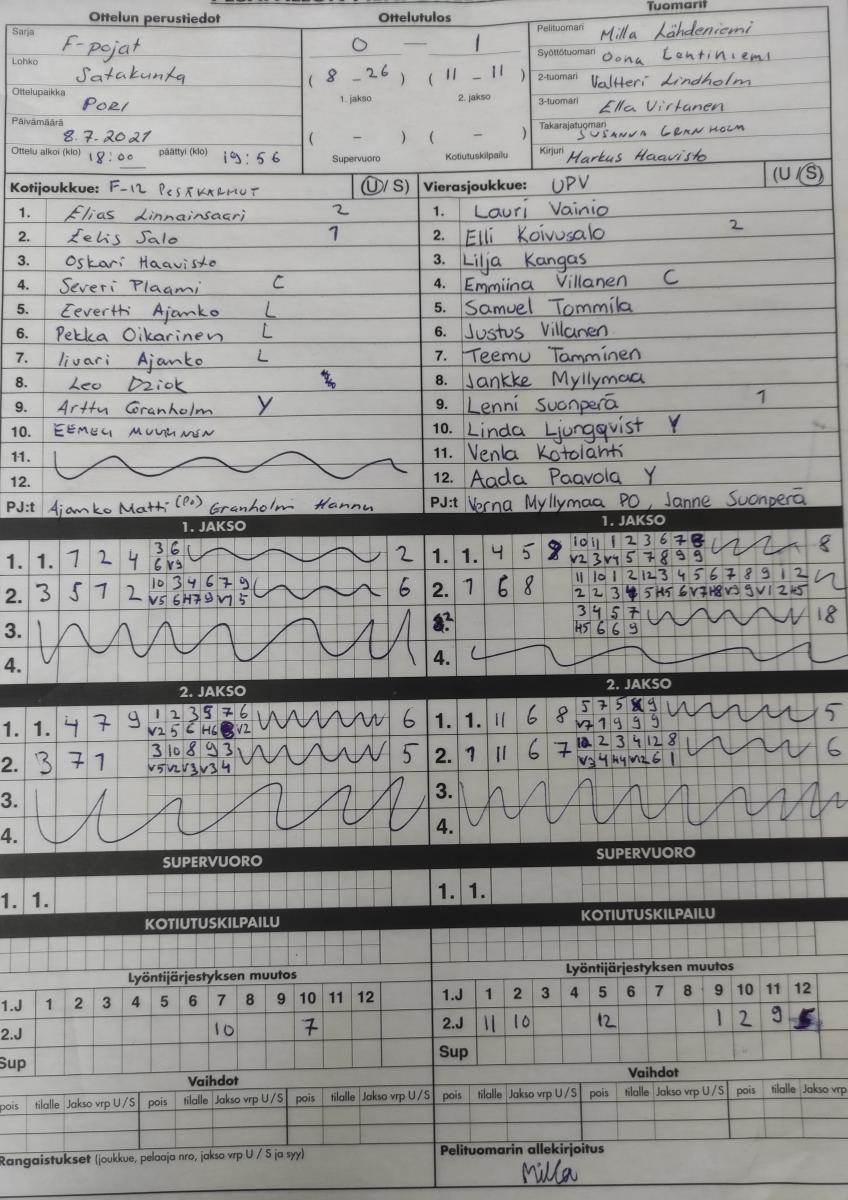 Ottelun perustiedot
Sarja
F-pojat
Lohko
Satakunta
Ottelupaikka
PORI
Päivämäärä
8.7.2021
Ottelu alkoi (klo) 18:00 päättyi (klo) 19:56
Ottelutulos
0 — 1
( 8 - 26 ) ( 11 - 11 )
1. jakso 2. jakso
( - ) ( - )
Supervuoro Kotiutuskilpailu
Tuomarit
Pelituomari Milla Lähdeniemi
Syöttötuomari Oona Lehtiniemi
2-tuomari Valtteri Lindholm
3-tuomari Ella Virtanen
Takarajatuomari SUSANNA GRANHOLM
Kirjuri Markus Haavisto
Kotijoukkue: F-12 PESÄKARHUT (U/S)
1. Elias Linnainsaari 2
2. Eelis Salo 1
3. Oskari Haavisto
4. Severi Plaami C
5. Eevertti Ajanko L
6. Pekka Oikarinen L
7. Iivari Ajanko L
8. Leo Dziok
9. Arttu Granholm Y
10. EEMELI MUURINEN
11.
12.
PJ:t Ajanko Matti (PO) Granholm Hannu
Vierasjoukkue: UPV (U/S)
1. Lauri Vainio
2. Elli Koivusalo 2
3. Lilja Kangas
4. Emmiina Villanen C
5. Samuel Tommila
6. Justus Villanen
7. Teemu Tamminen
8. Jankke Myllymaa
9. Lenni Suonperä 1
10. Linda Ljungqvist Y
11. Venla Kotolahti
12. Aada Paavola Y
PJ:t Verna Myllymaa PO, Janne Suonperä
1. JAKSO
3 6
1. 1. 1 2 4 2
6 V9
10 3 4 6 7 9
2. 3 5 1 2 6
V5 6 H7 9 V1 5
3.
4.
1. JAKSO
10 11 1 2 3 6 7 8
1. 1. 4 5 8
V2 3 V4 5 7 8 9 9
11 10 1 2 12 3 4 5 6 7 8 9 1 2
2. 1 6 8
2 2 3 4 5 H5 6 V7 H8 V9 9 V1 2 H5
3 4 5 7
18
H5 6 6 9
4.
2. JAKSO
1 2 3 5 7 6
1. 1. 4 7 9 6
V2 5 6 H6 V2
3 10 8 9 3
2. 3 7 1 5
V5 V2 V3 V3 4
3.
4.
2. JAKSO
5 7 5 9
1. 1. 11 6 8 5
V7 1 9 9 9
2 3 4 12 8
2. 1 11 6 7 6
V3 4 H4 V12 6 1
3.
4.
SUPERVUORO
1. 1.
SUPERVUORO
1. 1.
KOTIUTUSKILPAILU
KOTIUTUSKILPAILU
Lyöntijärjestyksen muutos
1.J 1 2 3 4 5 6 7 8 9 10 11 12
2.J 10 7
Sup
Lyöntijärjestyksen muutos
1.J 1 2 3 4 5 6 7 8 9 10 11 12
2.J 11 10 12 1 2 9 5
Sup
Vaihdot
pois tilalle Jakso vrp U / S pois tilalle Jakso vrp U / S pois tilalle Jakso vrp U / S
Vaihdot
pois tilalle Jakso vrp U / S pois tilalle Jakso vrp U / S pois tilalle Jakso vrp
Rangaistukset (joukkue, pelaaja nro, jakso vrp U / S ja syy)
Pelituomarin allekirjoitus
Milla